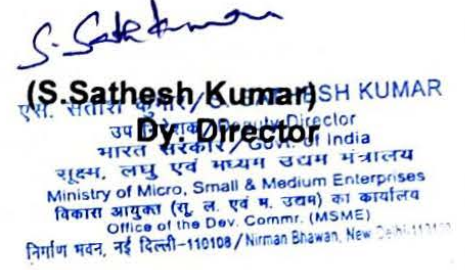 S. Sathesh Kumar
(S.Sathesh Kumar)
एस. सतीश कुमार/S. SATHESH KUMAR
उप निदेशक/Deputy Director
Dy. Director
भारत सरकार/Govt. of India
सूक्ष्म, लघु एवं मध्यम उद्यम मंत्रालय
Ministry of Micro, Small & Medium Enterprises
विकास आयुक्त (सू. ल. एवं म. उद्यम) का कार्यालय
Office of the Dev. Commr. (MSME)
निर्माण भवन, नई दिल्ली-110108/Nirman Bhawan, New Delhi-